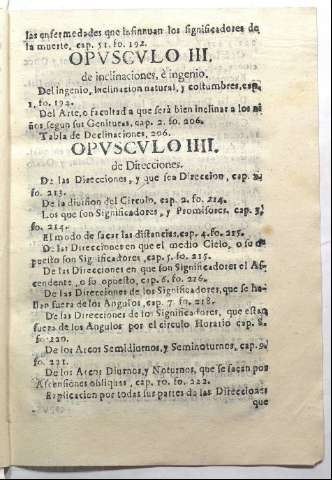 las enfermedades que insinuan los significadores de
la muerte, cap. 51. fo. 192.
OPVSCVLO III.
de inclinaciones, è ingenio.
Del ingenio, inclinacion natural, y costumbres, cap.
1. fo. 194.
Del Arte, o facultad a que serà bien inclinar a los ni
ños segun sus Genituras, cap. 2. fo. 206.
Tabla de Declinaciones, 206.
OPVSCVLO IIII.
de Direcciones.
De las Direcciones, y que sea Direccion, cap.
fo. 213.
De la diuision del Circulo, cap. 2. fo. 214.
Los que son Significadores, y Promisores, cap. 3,
fo. 214.
El modo de sacar las distancias, cap. 4. fo. 215.
De las Direcciones en que el medio Cielo, o su o
puesto son Significadores, cap. 5. fo. 215.
De las Direcciones en que son Significadores el As
cendente, o su opuesto, cap. 6. fo. 216.
De las Direcciones de los Significadores, que se ha
llan fuera de los Angulos, cap. 7. fo. 218.
De las Direcciones de los Significadores, que estan
fuera de los Angulos por el circulo Horario cap. 8.
fo. 220.
De los Arcos Semidiurnos, y Seminoturnos, cap. 9.
fo. 221.
De los Arcos Diurnos, y Noturnos, que se sacan por
Ascensiones obliquas, cap. 10. fo. 222.
Explicacion por todas sus partes de las Direcciones
que